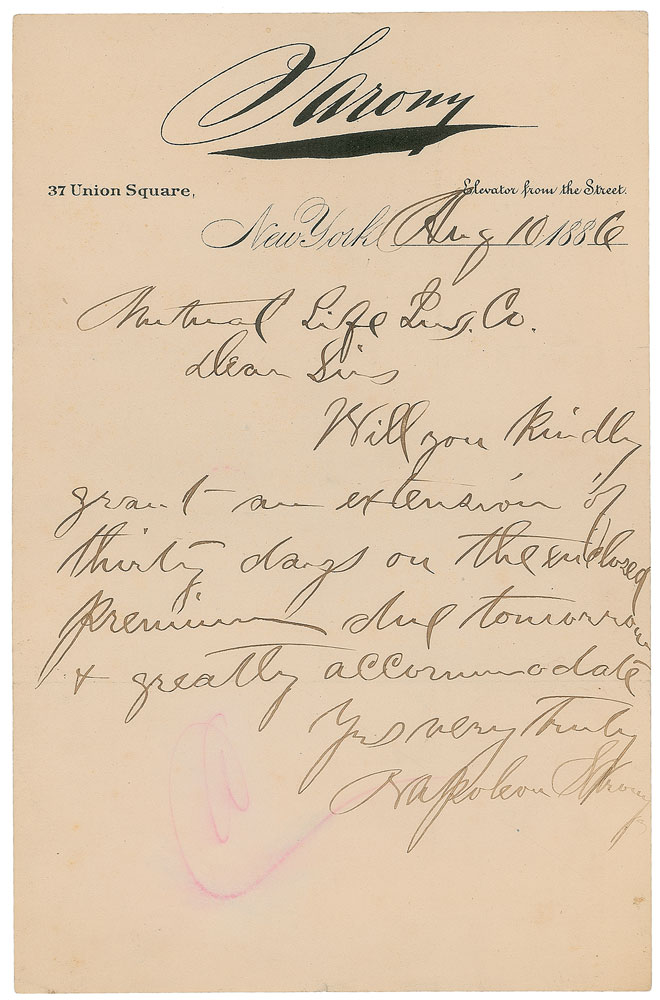 Sarony
37 Union Square,
Elevator from the Street.
New York Aug 10 1886
Mutual Life Ins. Co.
Dear Sirs
Will you kindly
grant an extension of
thirty days on the enclosed
premium due tomorrow
& greatly accommodate
Yrs very truly
Napoleon Sarony